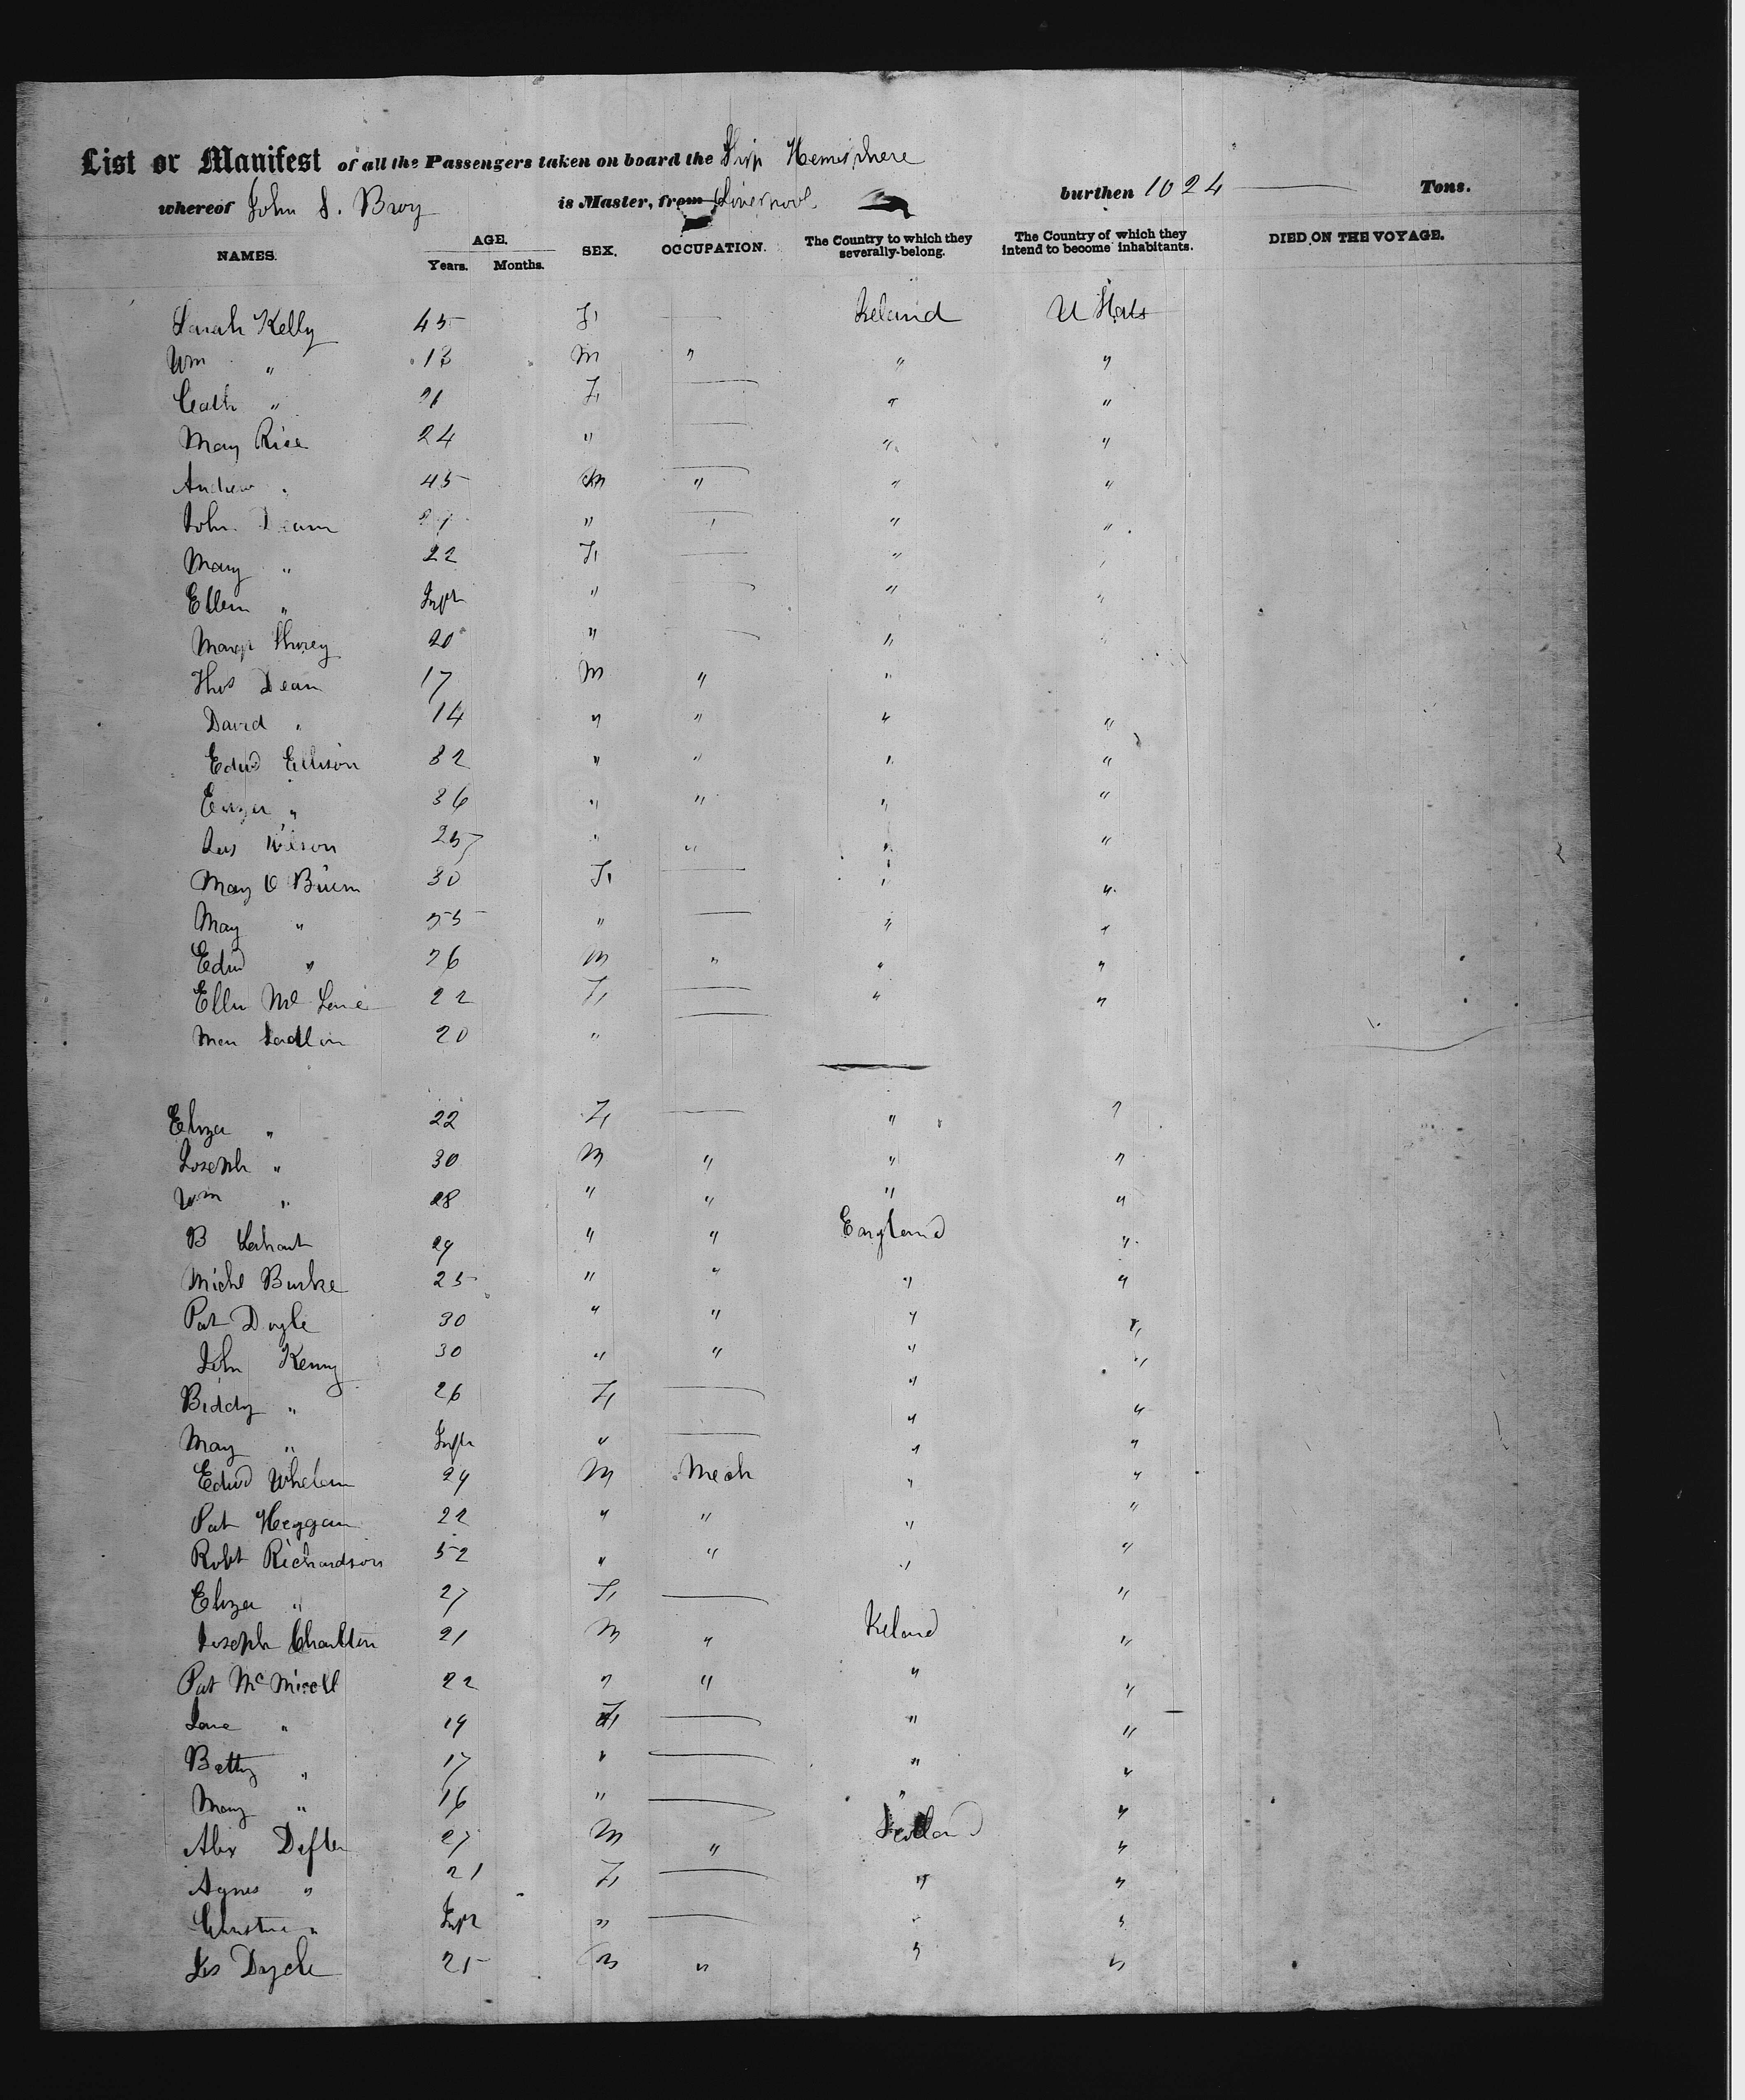 List or Manifest of all the Passengers taken on board the Ship Hemisphere
whereof John S. Bray is Master, from Liverpool burthen 1024 Tons.
NAMES. AGE. Years. Months. SEX. OCCUPATION. The Country to which they severally belong. The Country of which they intend to become inhabitants. DIED ON THE VOYAGE.
Sarah Kelly 45 F — Ireland U States
Wm " 13 M " " "
Cath " 21 F — " "
Mary Rice 24 " — " "
Andrew " 45 M " " "
John Deam " " "
Mary " 22 F — " "
Ellen " Inft " — " "
Margt 20 " — "
Thos Dean 17 M " "
David " 14 " " " "
Edwd Ellison 32 " " " "
" 36 " " " "
Jas Wilson 25 " " " "
Mary O Brien 30 F — " "
Mary " 55 " — " "
Edwd " 26 M " " "
Ellen Mc 22 F — " "
20 " —
Eliza " 22 F — " "
Joseph " 30 M " " "
Wm " 28 " " " "
B 29 " " England "
Michl Burke 25 " " " "
Pat Doyle 30 " " " "
John Kenny 30 " " " "
Biddy " 26 F — " "
Mary " Inft " — " "
Edwd Whelan 24 M Mech " "
Pat Heggan 22 " " " "
Robt Richardson 52 " " " "
Eliza " 27 F — "
Joseph Charlton 21 M " Ireland "
Pat Mc 22 " " " "
Jane " 19 F — " "
Betty " 17 " — " "
Mary " 16 " — " "
Alex 27 M " Scotland "
Agnes " 21 F — " "
" Inft " — " "
Jas 25 M " " "